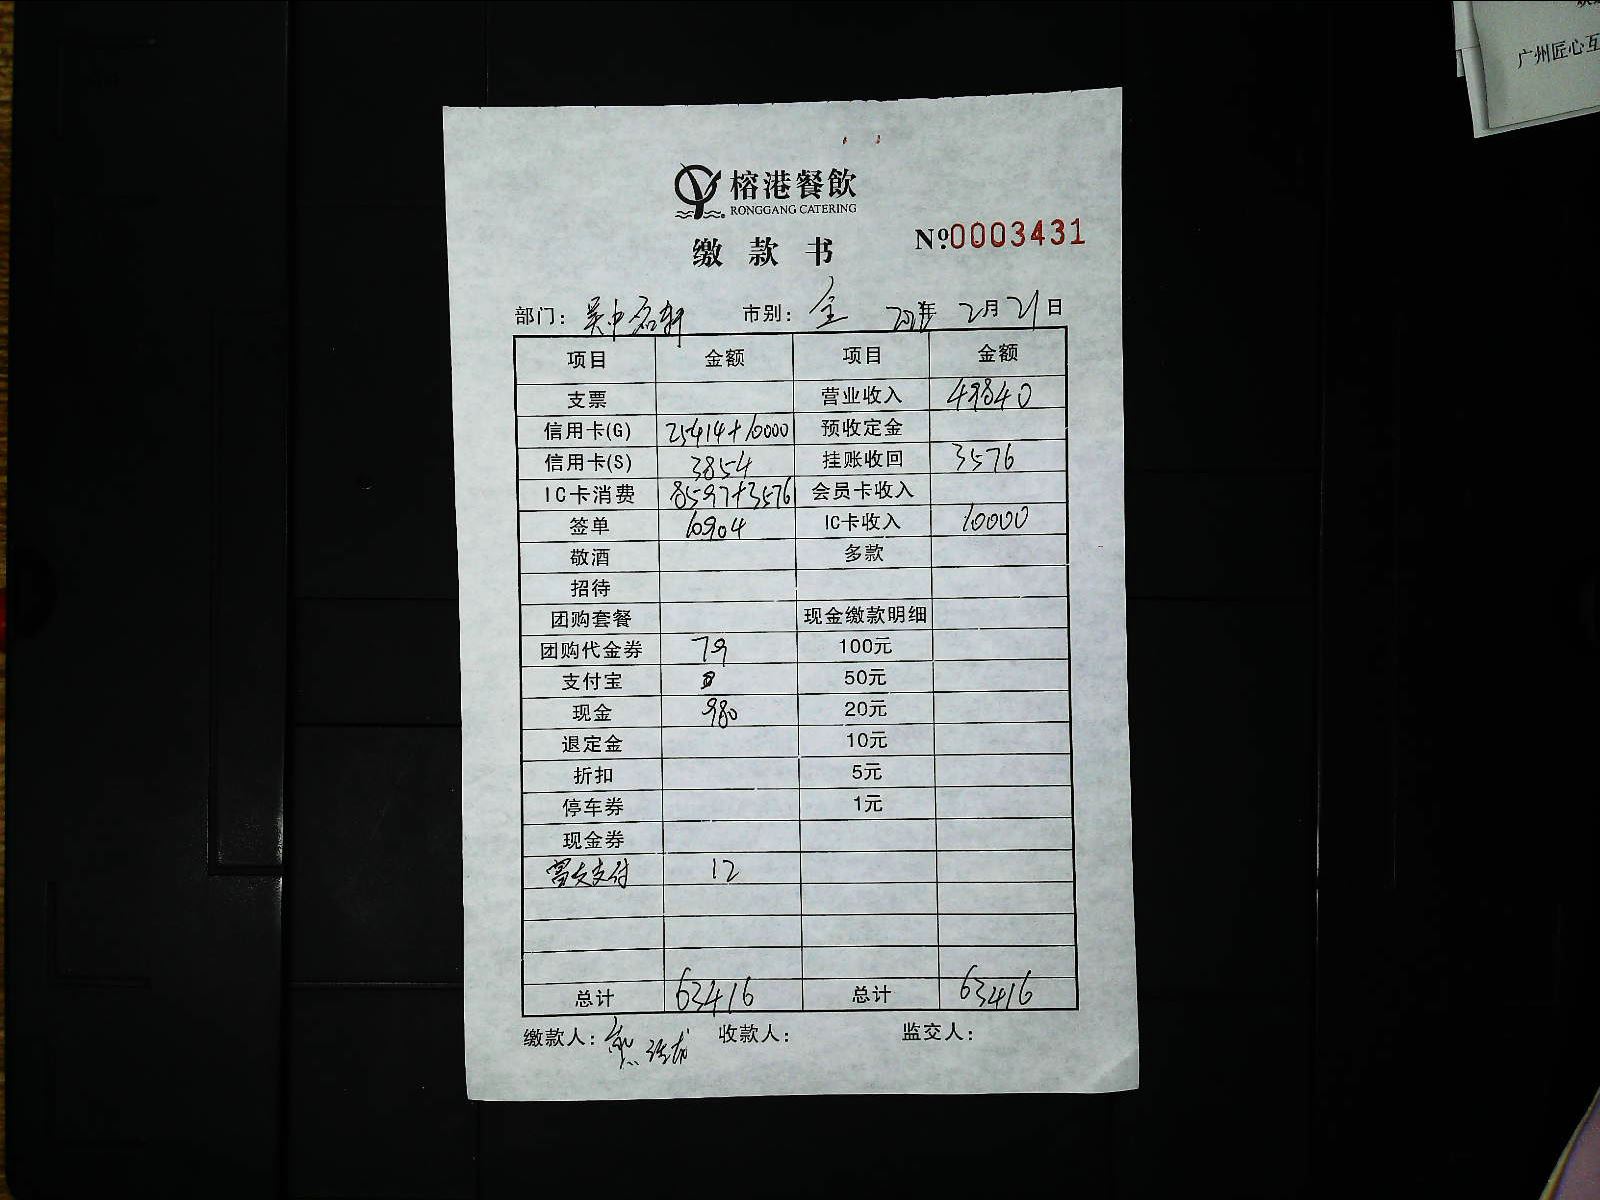 广州匠心互
榕港餐飲
RONGGANG CATERING
缴款书 Nº0003431
部门: 吴中名轩 市别: 全 年 2月21日
项目 金额 项目 金额
支票 营业收入 49840
信用卡(G) 25414+10000 预收定金
信用卡(S) 3854 挂账收回 3576
IC卡消费 8597+3576 会员卡收入
签单 10904 IC卡收入 10000
敬酒 多款
招待
团购套餐 现金缴款明细
团购代金券 79 100元
支付宝 50元
现金 980 20元
退定金 10元
折扣 5元
停车券 1元
现金券
支付 12
总计 63416 总计 63416
缴款人: 熊 收款人: 监交人: